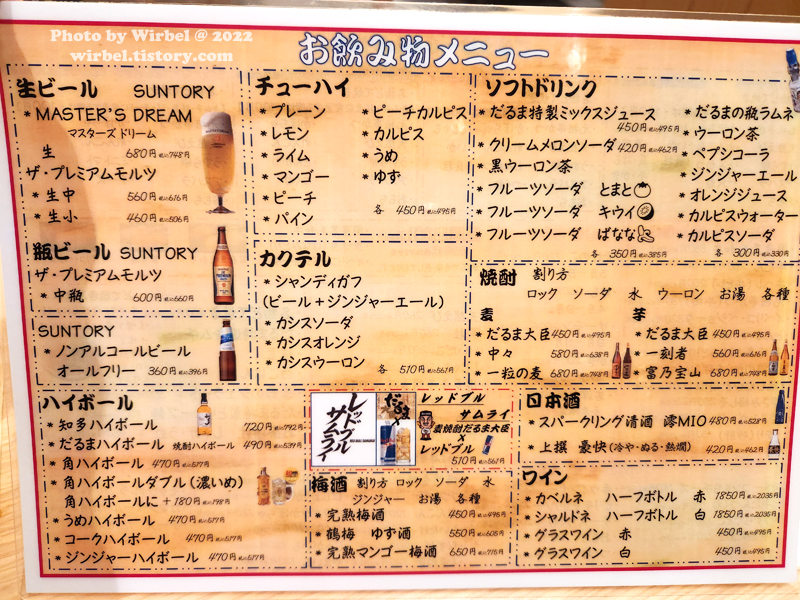 Photo by Wirbel @ 2022
wirbel.tistory.com
お飲み物メニュー
生ビール SUNTORY
* MASTER'S DREAM
マスターズドリーム
生 680円 税込748円
ザ・プレミアムモルツ
* 生中 560円 税込616円
* 生小 460円 税込506円
瓶ビール SUNTORY
ザ・プレミアムモルツ
* 中瓶 600円 税込660円
SUNTORY
* ノンアルコールビール
オールフリー 360円 税込396円
チューハイ
* プレーン * ピーチカルピス
* レモン * カルピス
* ライム * うめ
* マンゴー * ゆず
* ピーチ
* パイン 各 450円 税込495円
カクテル
* シャンディガフ
(ビール+ジンジャーエール)
* カシスソーダ
* カシスオレンジ
* カシスウーロン 各 510円 税込561円
ソフトドリンク
* だるま特製ミックスジュース
450円 税込495円
* クリームメロンソーダ 420円 税込462円
* 黒ウーロン茶
* フルーツソーダ とまと
* フルーツソーダ キウイ
* フルーツソーダ ばなな
各 350円 税込385円
* だるまの瓶ラムネ
* ウーロン茶
* ペプシコーラ
* ジンジャーエール
* オレンジジュース
* カルピスウォーター
* カルピスソーダ
各 300円 税込330円
焼酎 割り方
ロック ソーダ 水 ウーロン お湯 各種
麦
* だるま大臣 450円 税込495円
* 中々 580円 税込638円
* 一粒の麦 680円 税込748円
芋
* だるま大臣 450円 税込495円
* 一刻者 560円 税込616円
* 富乃宝山 680円 税込748円
ハイボール
* 知多ハイボール 720円 税込792円
* だるまハイボール 焼酎ハイボール 490円 税込539円
* 角ハイボール 470円 税込517円
* 角ハイボールダブル(濃いめ)
角ハイボールに +180円 税込198円
* うめハイボール 470円 税込517円
* コークハイボール 470円 税込517円
* ジンジャーハイボール 470円 税込517円
レッドブル
サムライ
だるま
レッドブル
サムライ
麦焼酎だるま大臣
×
レッドブル
510円 税込561円
梅酒 割り方 ロック ソーダ 水
ジンジャー お湯 各種
* 完熟梅酒 450円 税込495円
* 鶴梅 ゆず酒 550円 税込605円
* 完熟マンゴー梅酒 650円 税込715円
日本酒
* スパークリング清酒 澪MIO 480円 税込528円
* 上撰 豪快(冷や・ぬる・熱燗) 420円 税込462円
ワイン
* カベルネ ハーフボトル 赤 1850円 税込2035円
* シャルドネ ハーフボトル 白 1850円 税込2035円
* グラスワイン 赤 450円 税込495円
* グラスワイン 白 450円 税込495円